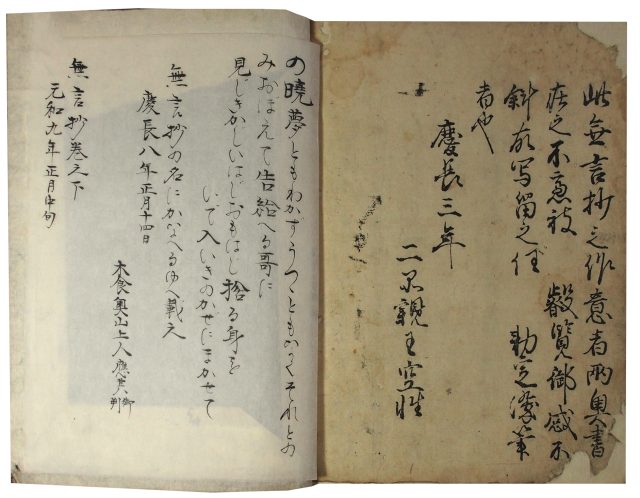 此無言抄之作意者両奥書
在之不慮被 叡覧御感不
斜故写留之任 勅定湊筆
者也
慶長三年
二品親王空性
の曉夢ともわかずうつゝともなくそれとの
みおぼえて告給へる哥に
見じきかじいはじおもはじ捨る身を
いで入いきのかぜにまかせて
無言抄の名にかなへるゆへ載之
慶長八年正月十四日
木食奥山上人應其御判
無言抄巻之下
元和九年正月中旬